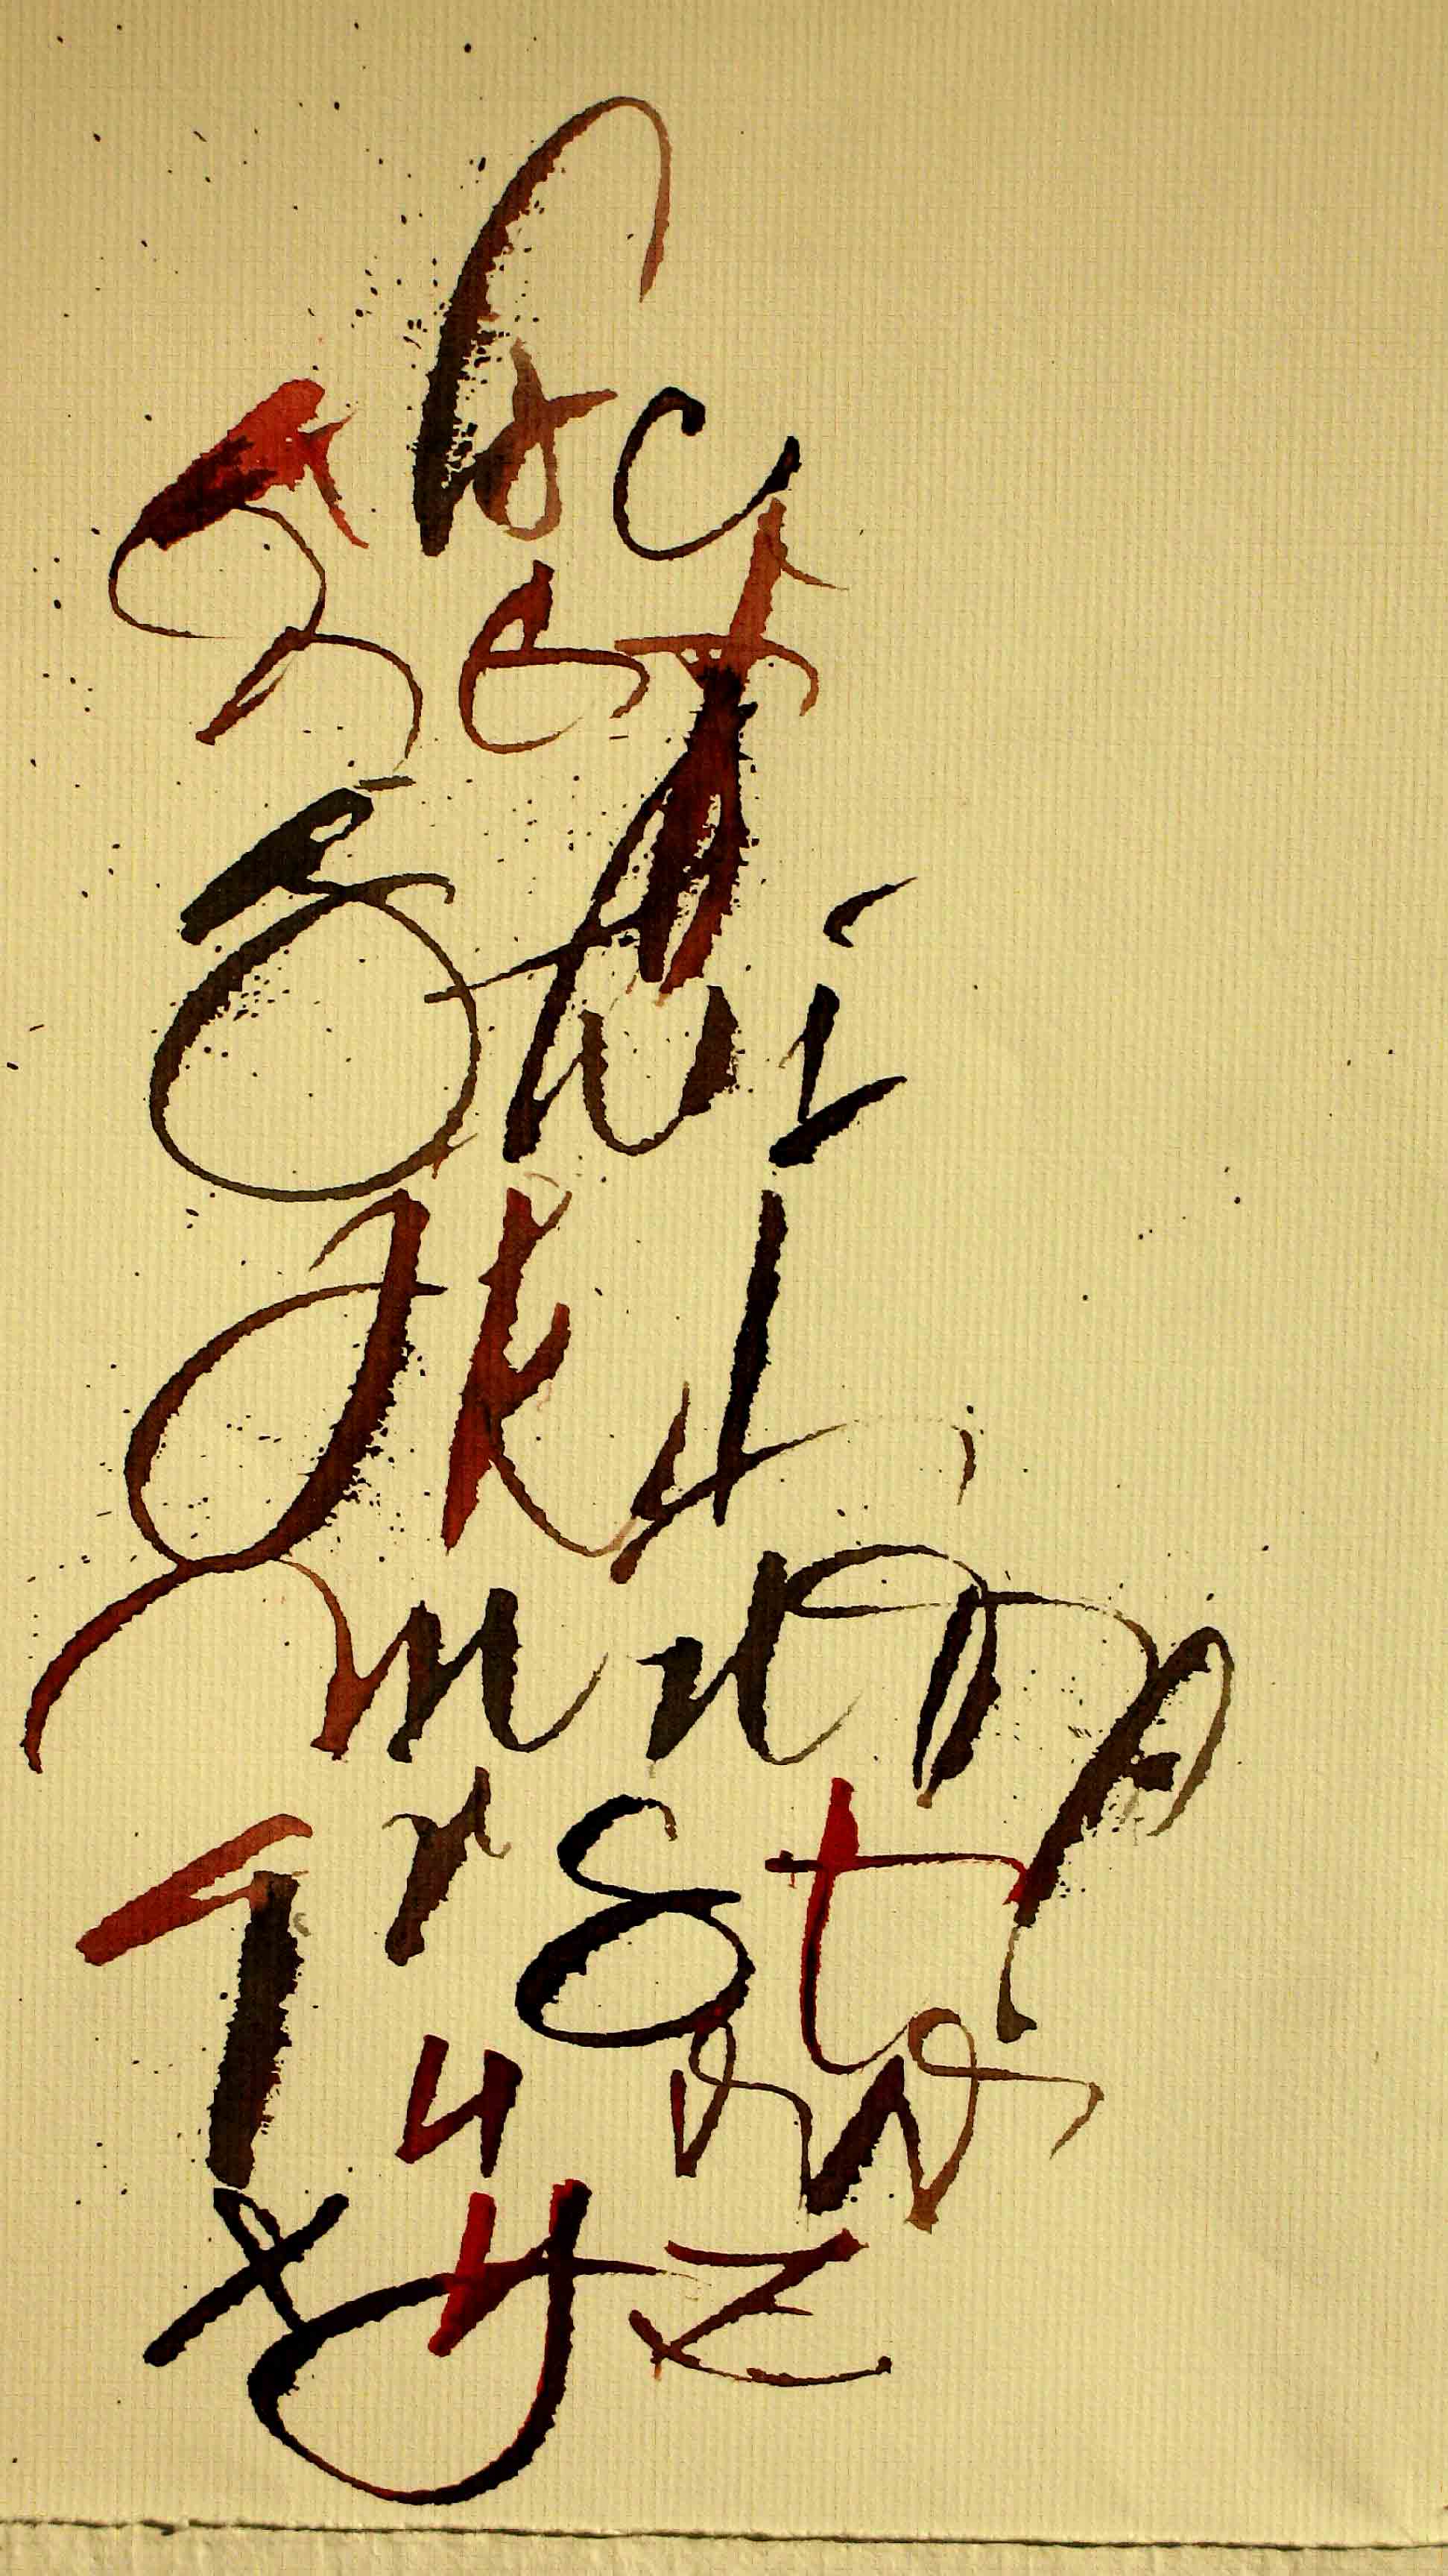 abc
def
ghi
jkl
mnop
qrst
uvw
xyz